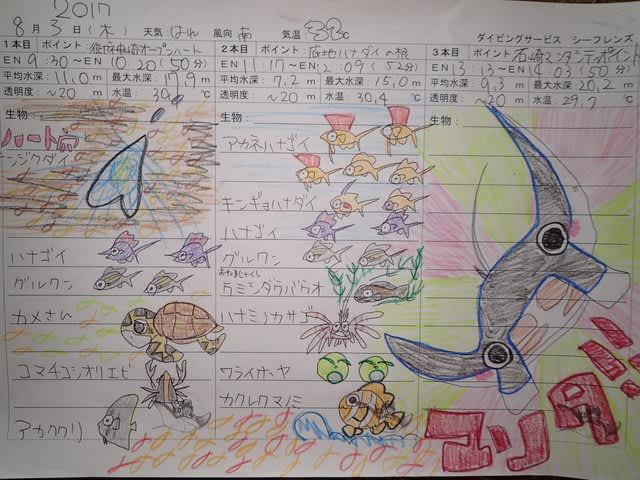 2017
8月 3日（木） 天気：はれ 風向 南 気温 33℃
ダイビングサービス シーフレンズ
1本目 ポイント：
オープンハート
EN 9:30～EN 10:20（50分）
平均水深：11.0m 最大水深：17.9m
透明度：~20m 水温 30. ℃
生物：
ハート
ンジクダイ
ハナゴイ
グルクン
カメさん
コマチコシオリエビ
アカククリ
2本目 ポイント：底地ハナダイの根
EN 11:17～EN 12:09（52分）
平均水深：7.2m 最大水深：15.0m
透明度：~20m 水温 30.4℃
生物：
アカネハナゴイ
キンギョハナダイ
ハナゴイ
グルクン
おたまじゃくし
カミシダウバウオ
ハナミノカサゴ
ワライボヤ
カクレクマノミ
3本目 ポイント：石崎マンタシティポイント
EN 13:13～EN 14:03（50分）
平均水深：9.3m 最大水深：20.2m
透明度：~20m 水温 29.7℃
生物：
マンタ